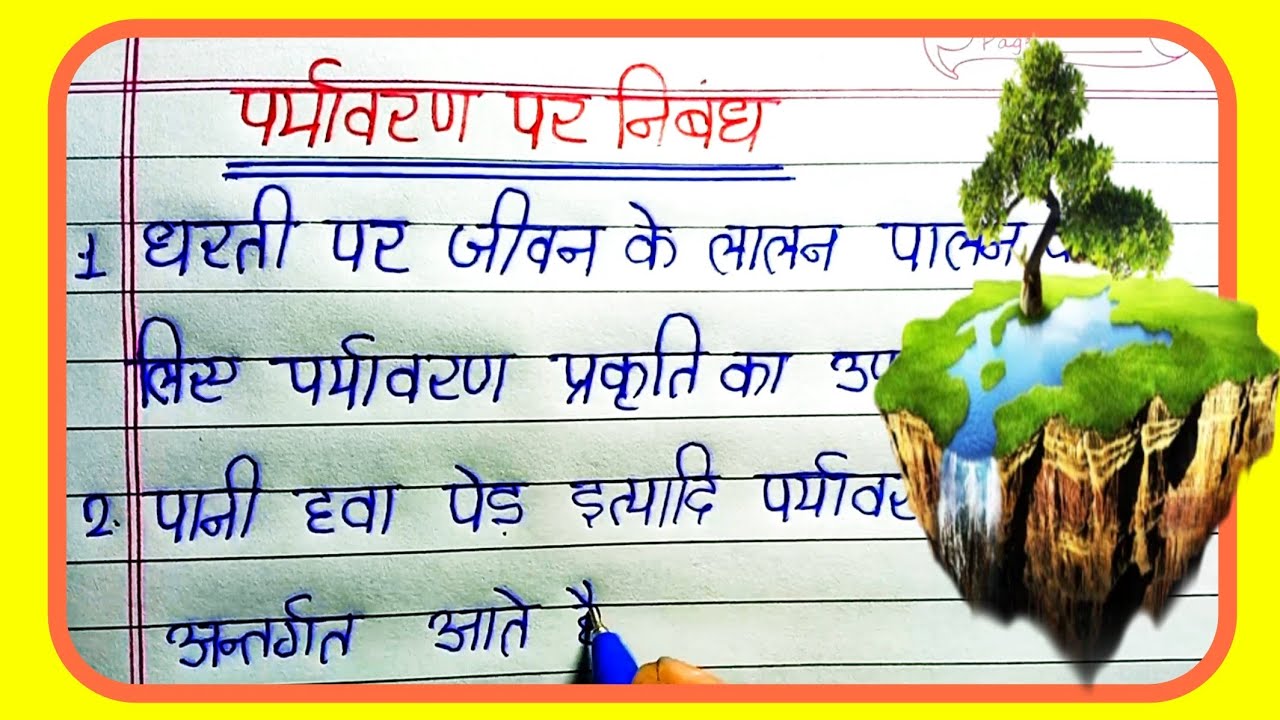 Pag
पर्यावरण पर निबंध
1 धरती पर जीवन के लालन पालन
लिए पर्यावरण प्रकृति का
2. पानी हवा पेड़ इत्यादि
अन्तर्गत आते है